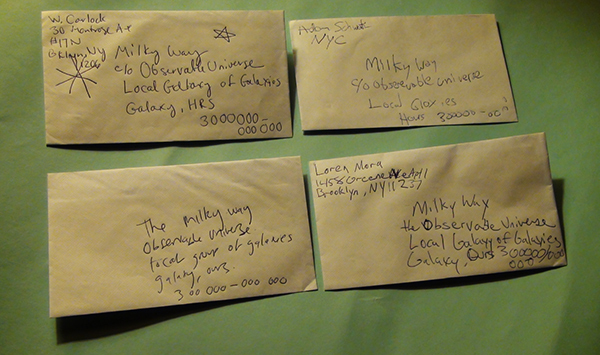 W. Carlock
30 Montrose Ave
#17N
Brklyn, NY
11206
Milky Way
c/o Observable Universe
Local Gallary of Galaxies
Galaxy, HRS
3000000-
000 000
Adam
NYC
Milky Way
c/o Observable Universe
Local Glaxies
Hours 300000-00
The milky way
observable universe
local group of galaxies
galaxy, ours.
300 000-000 000
Loren Mora
1458 Greene Ave Apt 1
Brooklyn, NY 11237
Milky Way
the Observable Universe
Local Galaxy of Galaxies
Galaxy, Ours 300000/000
000